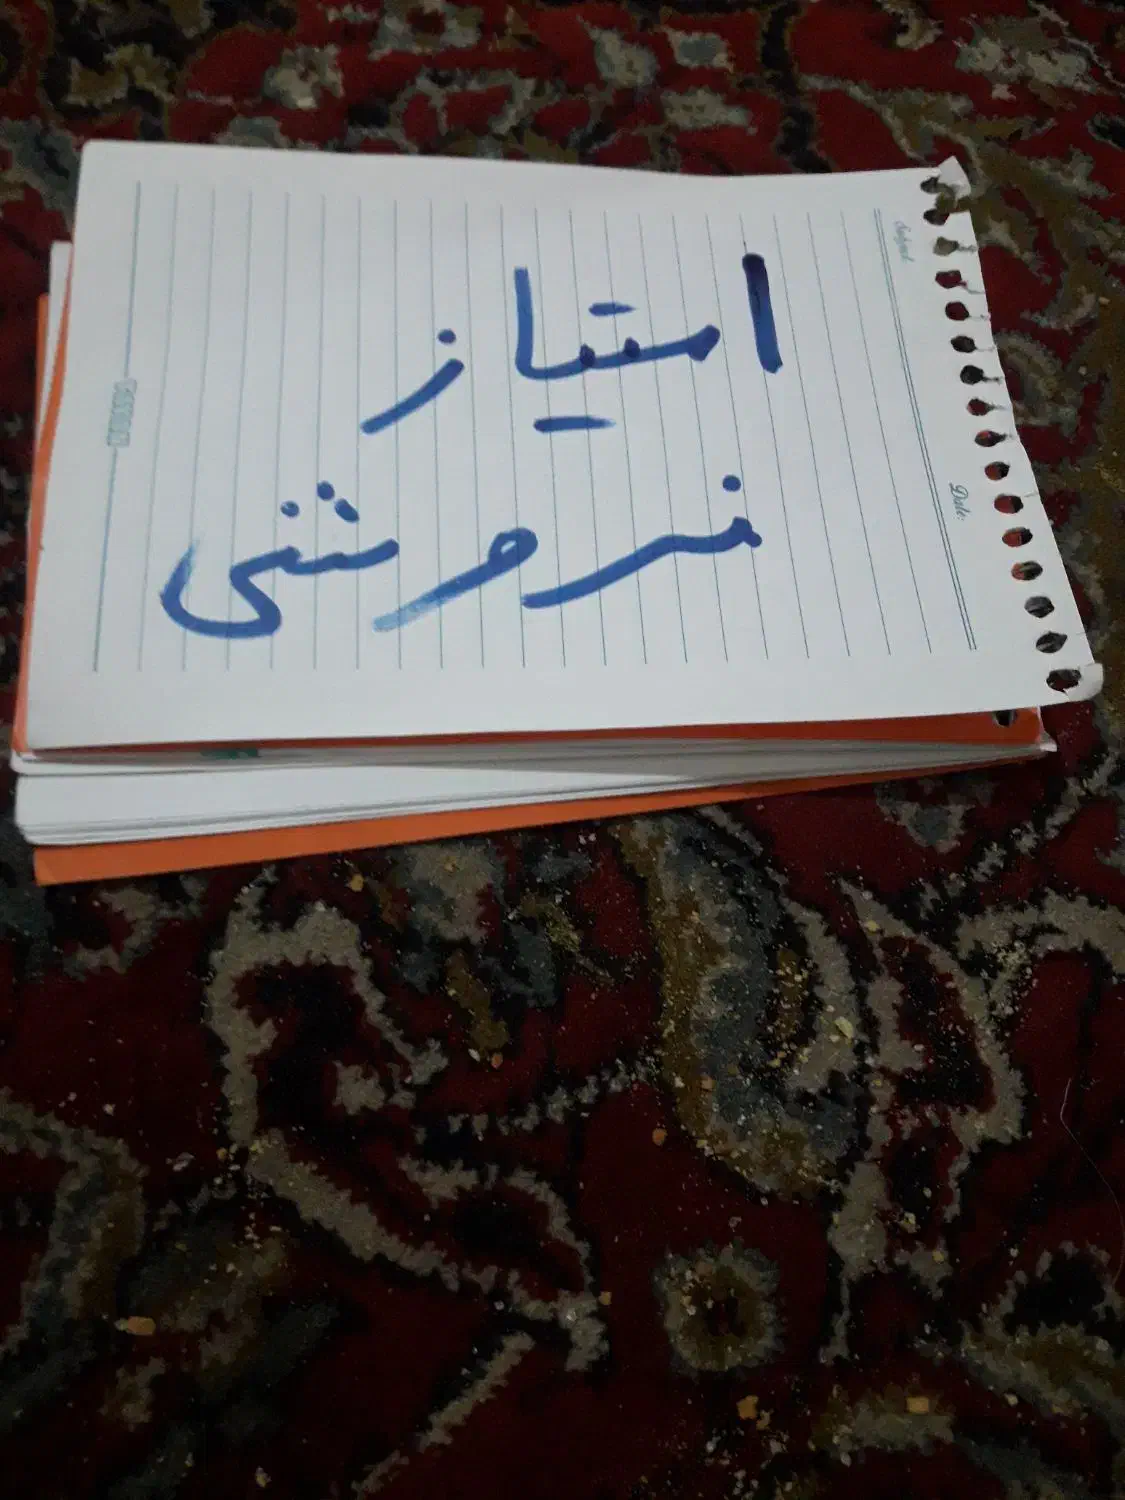 امتیاز
فروشی
Subject:
Date: